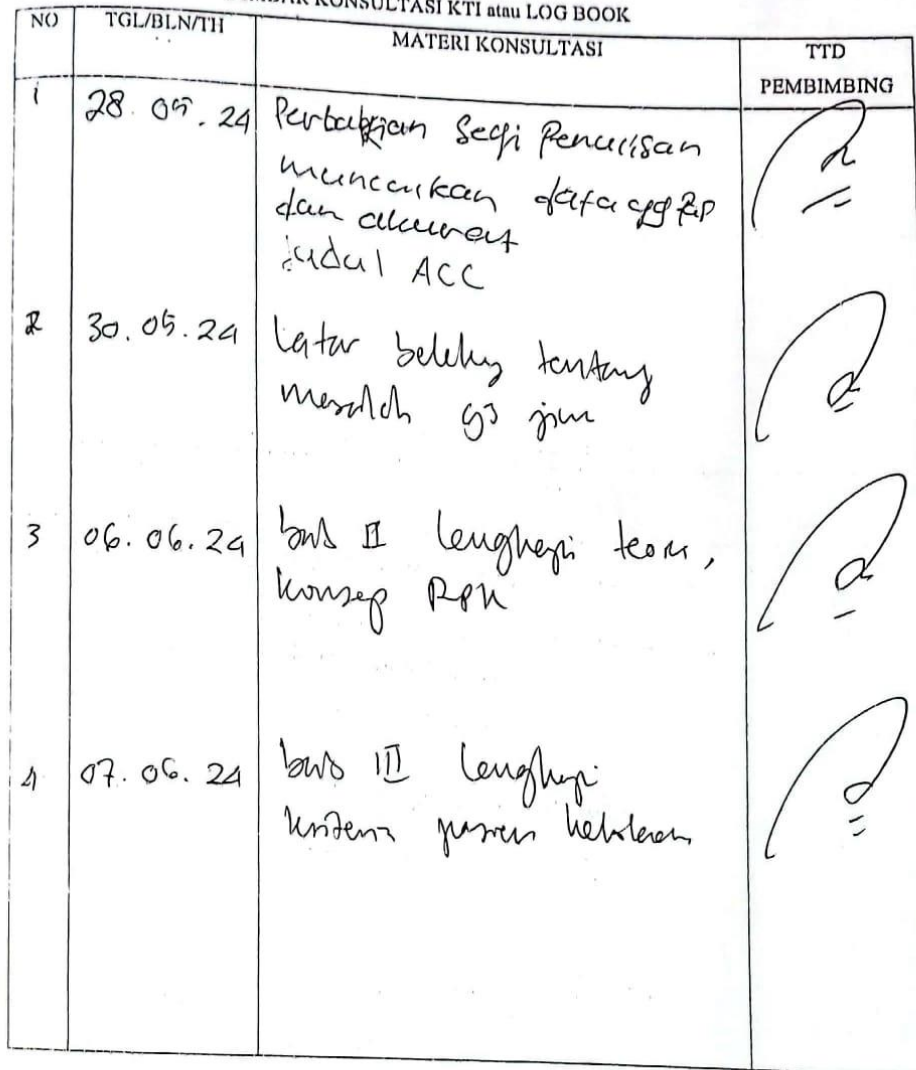 KONSULTASI KTI atau LOG BOOK
NO TGL/BLN/TH MATERI KONSULTASI TTD
PEMBIMBING
1 28.05.24 Perbaikian Segi Penulisan
dan akurat
judul ACC
2 30.05.24 Latar belakang tentang
masalah jiwa
3 06.06.24 bab II lengkapi teori,
konsep RPK
4 07.06.24 bab III lengkapi
kriteria pasien kelolaan